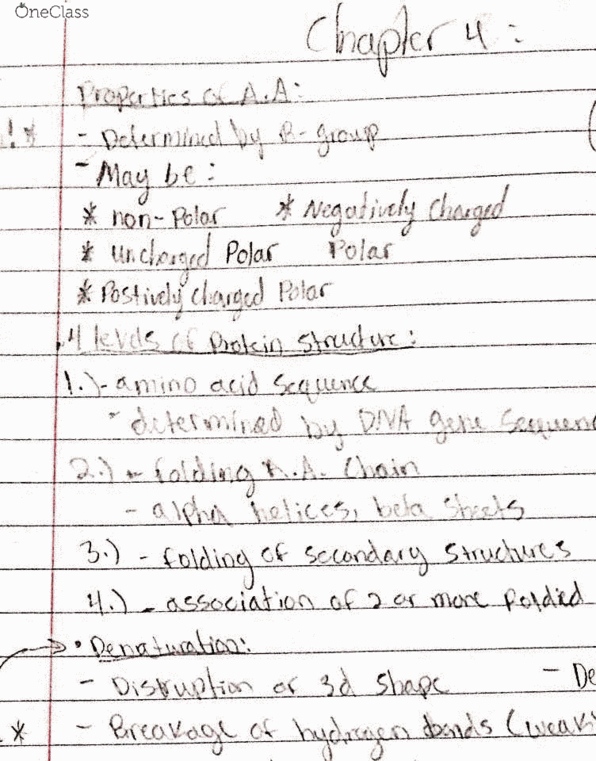 OneClass
Chapter 4:
Properties of A.A:
! * - Determined by R-group
- May be:
* non-Polar * Negatively Charged
* Uncharged Polar Polar
* Postively charged Polar
4 levels of Protein Structure:
1.) - amino acid sequence
- determined by DNA gene Sequen
2.) - folding A.A. Chain
- alpha helices, beta sheets
3.) - folding of secondary structures
4.) - association of 2 or more folded
• Denaturation:
- Disruption of 3d shape - De
* - Breakage of hydrogen bonds (weak